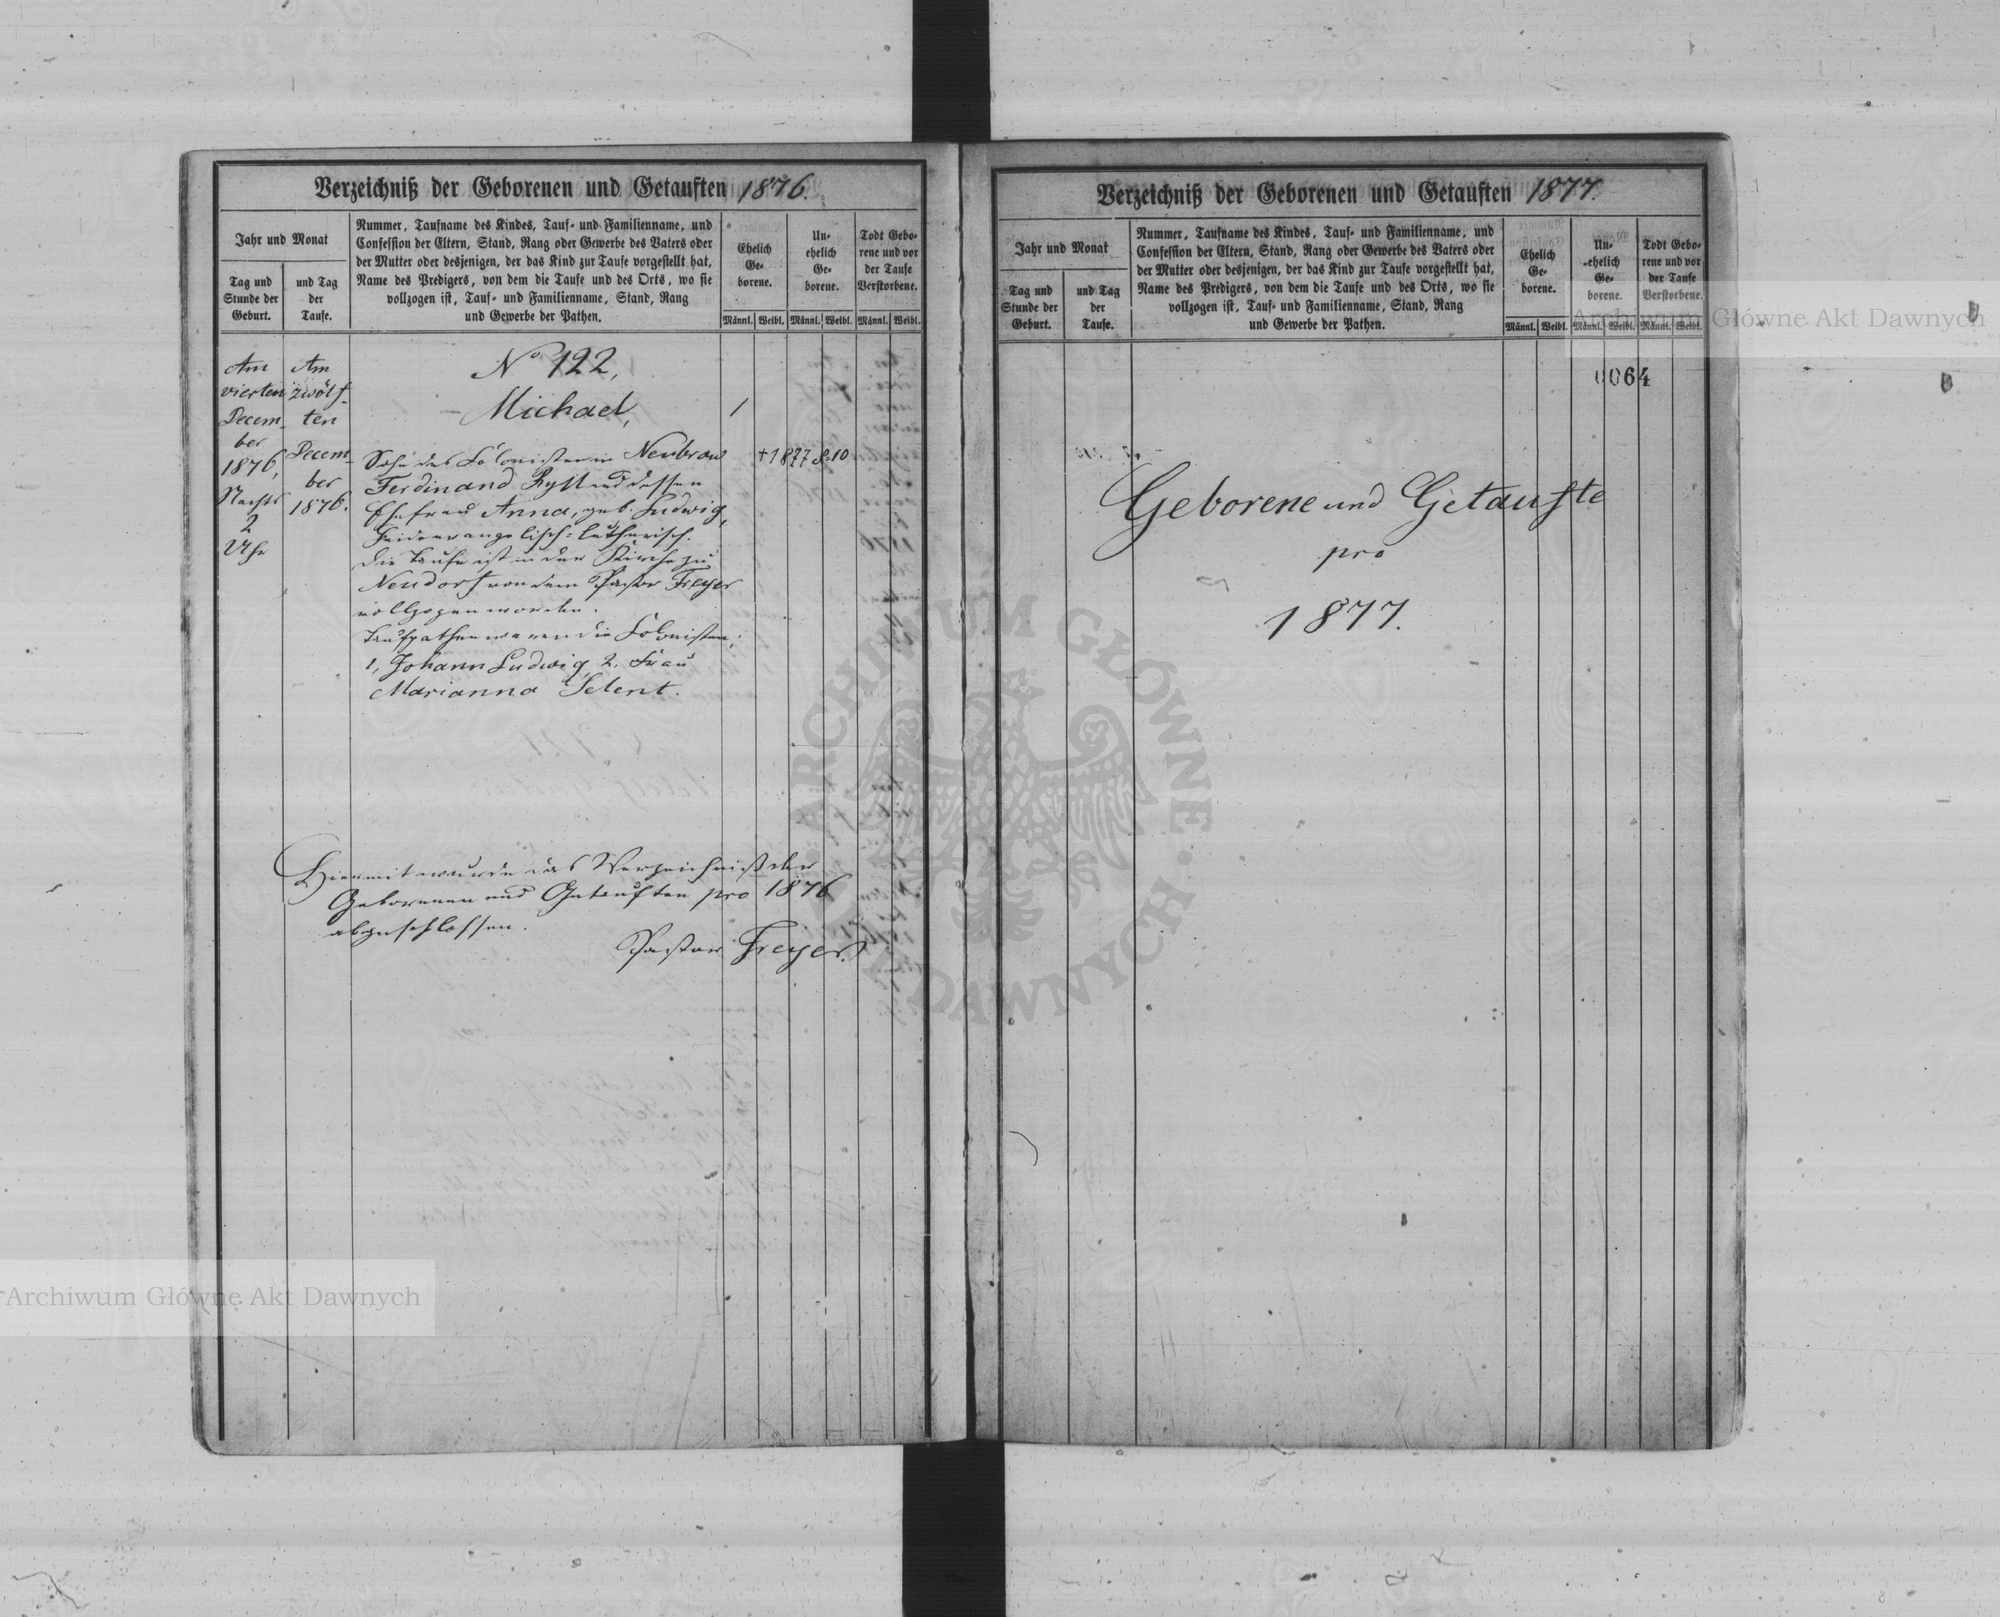 Verzeichniß der Geborenen und Getauften 1876.
Jahr und Monat
Tag und
Stunde der
Geburt.
und Tag
der
Taufe.
Nummer, Taufname des Kindes, Tauf- und Familienname, und
Confession der Eltern, Stand, Rang oder Gewerbe des Vaters oder
der Mutter oder desjenigen, der das Kind zur Taufe vorgestellt hat,
Name des Predigers, von dem die Taufe und des Orts, wo sie
vollzogen ist, Tauf- und Familienname, Stand, Rang
und Gewerbe der Pathen.
Ehelich
Ge-
borene.
Un-
ehelich
Ge-
borene.
Todt Gebo-
rene und vor
der Taufe
Verstorbene.
Männl. Weibl. Männl. Weibl. Männl. Weibl.
Am
vierten
Decem-
ber
1876,
Nachts
2
Uhr
Am
zwölf-
ten
Decem-
ber
1876.
No 122,
Michael,
1
+ 1877 8.10
Sohn des Colonisten in Neubrow
Ferdinand Ryll und dessen
Ehefrau Anna, geb. Ludwig,
Beide evangelisch-lutherisch.
Die Taufe ist in der Kirche zu
Neudorf von dem Pastor Freyer
vollzogen worden.
Taufpathen waren die Colonisten:
1, Johann Ludwig, 2. Frau
Marianna Selent.
Hiermit wurde das Verzeichniß der
Geborenen und Getauften pro 1876
abgeschlossen.
Pastor Freyer.
Verzeichniß der Geborenen und Getauften 1877.
Jahr und Monat
Tag und
Stunde der
Geburt.
und Tag
der
Taufe.
Nummer, Taufname des Kindes, Tauf- und Familienname, und
Confession der Eltern, Stand, Rang oder Gewerbe des Vaters oder
der Mutter oder desjenigen, der das Kind zur Taufe vorgestellt hat,
Name des Predigers, von dem die Taufe und des Orts, wo sie
vollzogen ist, Tauf- und Familienname, Stand, Rang
und Gewerbe der Pathen.
Ehelich
Ge-
borene.
Un-
ehelich
Ge-
borene.
Todt Gebo-
rene und vor
der Taufe
Verstorbene.
Männl. Weibl. Männl. Weibl. Männl. Weibl.
0064
Geborene und Getaufte
pro
1877.
Archiwum Główne Akt Dawnych
Archiwum Główne Akt Dawnych
ARCHIWUM GŁÓWNE AKT DAWNYCH